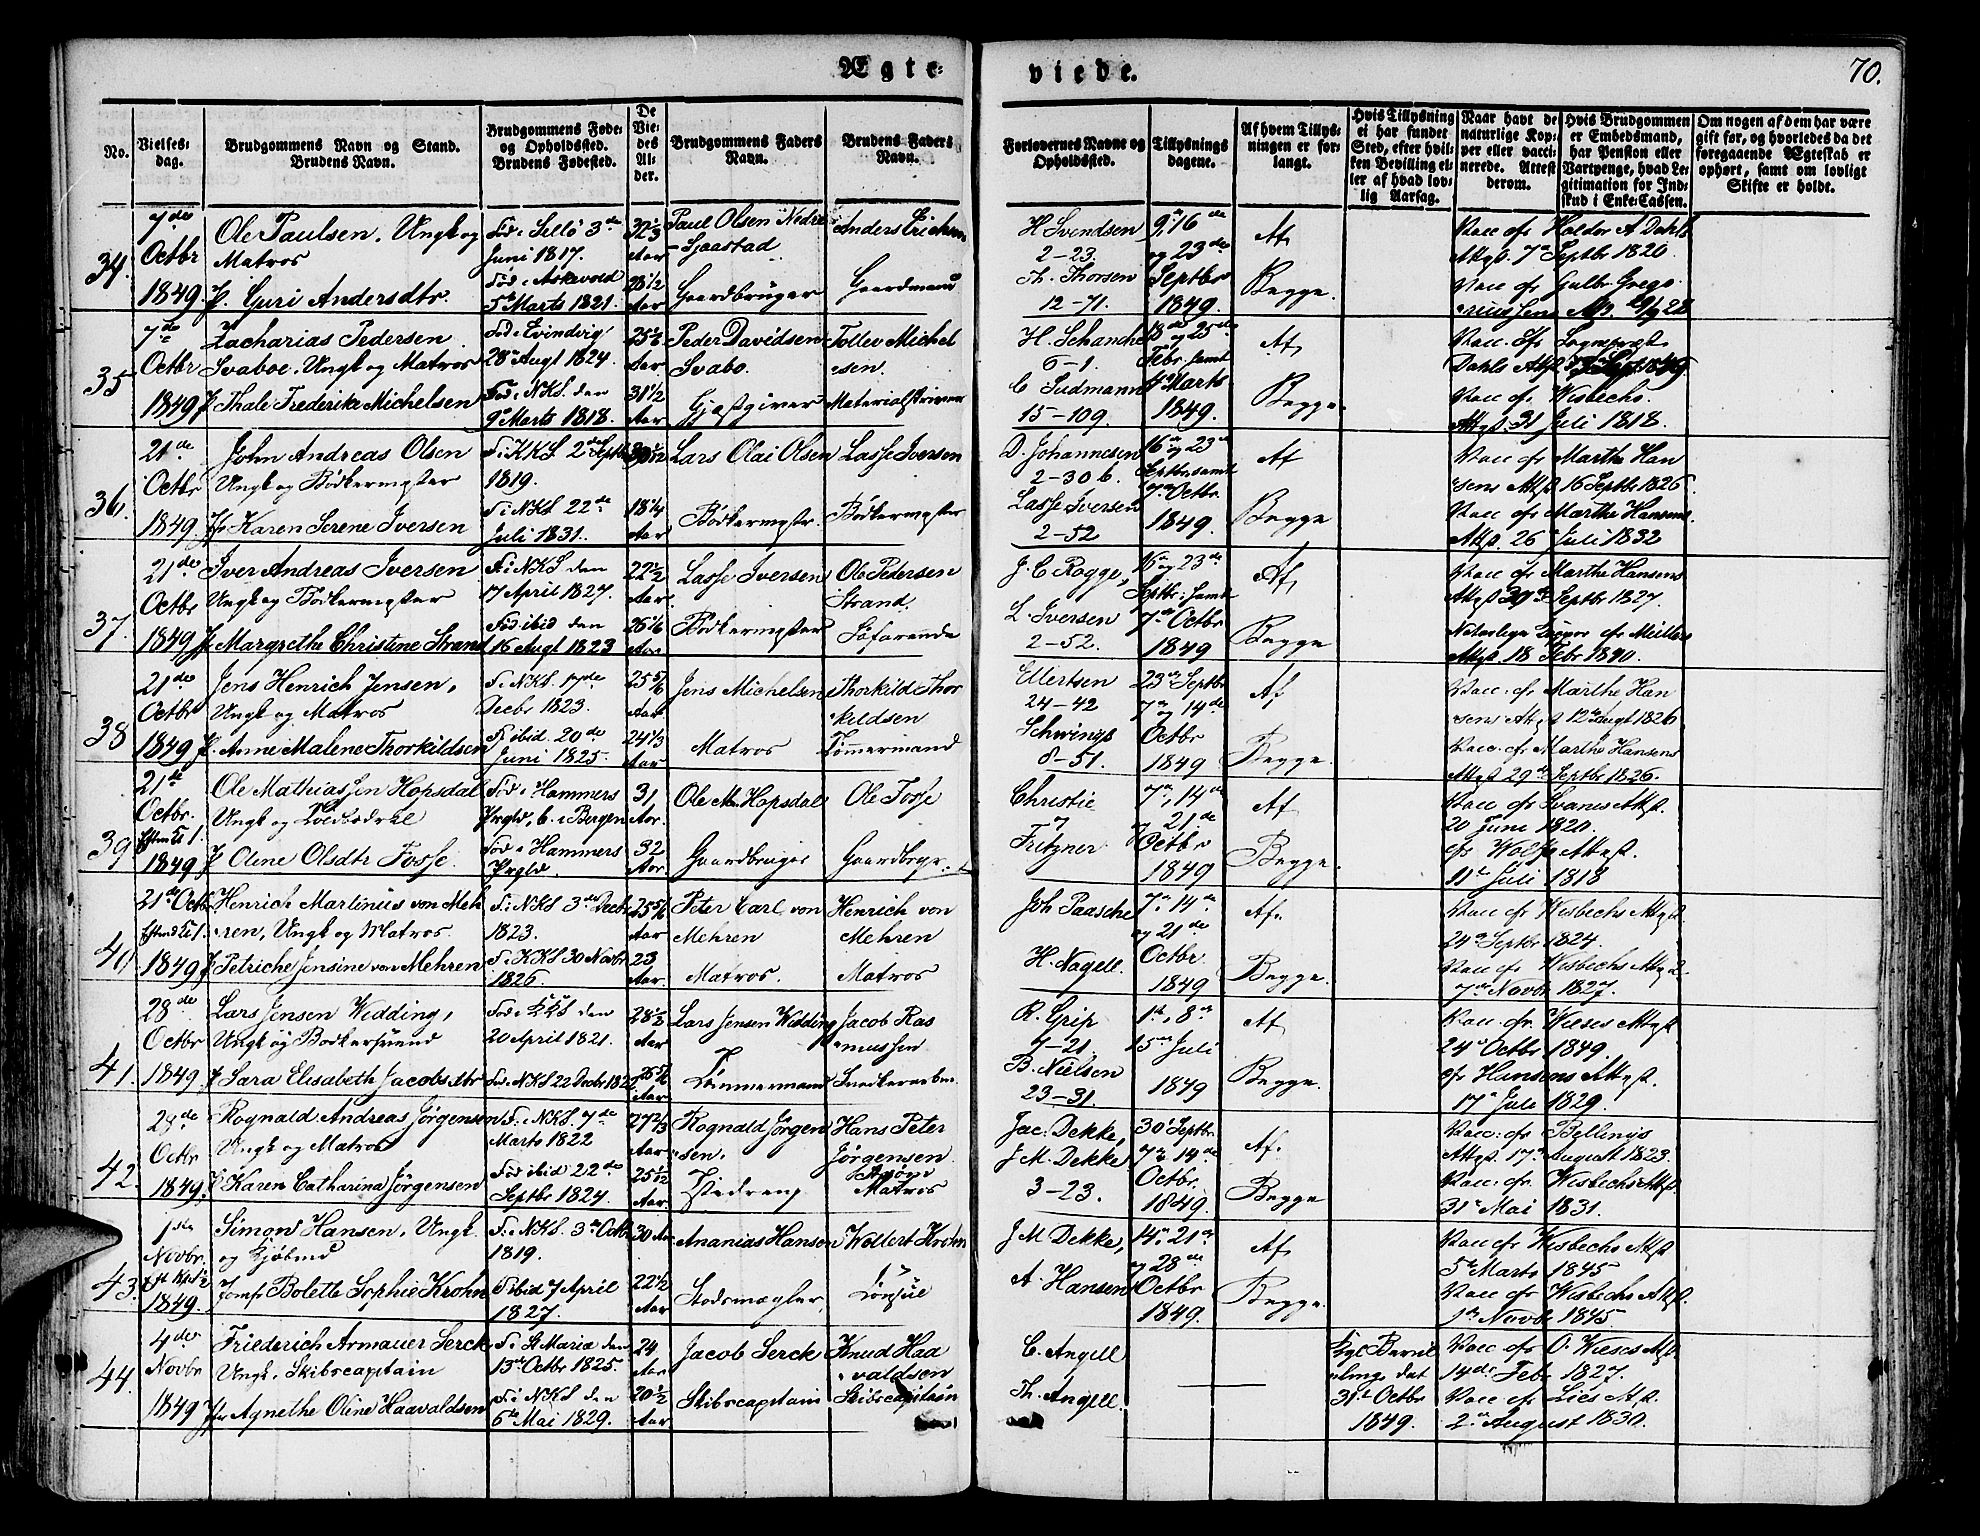 Ægte-
viede.
70.
No.
Vielses-
dag.
Brudgommens Navn og Stand.
Brudens Navn.
Brudgommens Føde-
og Opholdssted.
Brudens Fødested.
De
Vie-
des
Al-
der.
Brudgommens Faders
Navn.
Brudens Faders
Navn.
Forlovernes Navne og
Opholdssted.
Tillysnings
dagene.
Af hvem Tillys-
ningen er for-
langt.
Hvis Tillysning
ei har fundet
Sted, efter hvil-
ken Bevilling el-
ler af hvad lov-
lig Aarsag.
Naar havt de
naturlige Kop-
per eller vacci-
nerede. Attest
derom.
Hvis Brudgommen
er Embedsmand,
har Pension eller
Vartpenge, hvad Le-
gitimation for Ind-
skud i Enke-Cassen.
Om nogen af dem har være
gift før, og hvorledes da det
foregaaende Ægteskab er
ophørt, samt om lovligt
Skifte er holdt.
34.
7de
Octbr
1849.
Ole Paulsen. Ungk og
Matros
P. Guri Andersdtr.
Fød i Sellö 3de
Juni 1817.
Fød i Askevold
5te Marts 1821.
32 1/3
Aar
28 1/2
Aar
Paul Olsen Nedre
-Sjaastad
Gaardbruger
Anders Erichsen
Gaardmand
H. Svendsen
2-23.
Th. Thorsen
12-71.
9n 16de
og 23de
Septbr
1849.
Af
Begge.
Vacc. af Holdor A Dahls
Attst. 7n Septbr 1820.
Vacc af Gulbr Grego
riussens
35
7de
Octbr
1849
Zacharias Pedersen
Svaboe. Ungk og Matros
P. Thale Frederike Michelsen
Fød i Evindvig
28n Augt 1824.
Fød i NKS. den
9n Marts 1818.
Aar
31 1/2
Aar
Peder Davidsen
Svabo.
Gjæstgiver
Tollev Michel
sen.
Materialskriver
H. Schanche
6-1.
C Sudmann
15-109.
18de og 25de
Febr. samt
4n Marts
1849.
Af
Begge.
Vacc. af Sogneprest
Dahls Attst
Vacc af Wisbechs.
Attst. 31 Juli 1818.
36.
21de
Octbr
1849
John Andreas Olsen
Ungk og Bödkermester
Jfr Karen Serene Iversen
F. i KKS 2de Septbr
1819.
F i NKS 22de
Juli 1831.
30 1/12
Aar
18 1/4
Aar
Lars Olai Olsen
Bödkermester.
Lasse Iversen
Bödkermester
D. Johannesen
2-30 b.
Lasse Iversen
2-52
16n og 23de
Septbr samt
7n Octbr.
1849.
Af
Begge
Vacc af Marthe Han
sens Attst 16 Septbr 1826.
Vacc af Marthe Hansens.
Attst. 26 Juli 1832
37.
21de
Octbr
1849
Iver Andreas Iversen
Ungk og Bödkermester
P. Margrethe Christine Strand
F. i NKS den
17 April 1827.
Fød ibid den
16 Augt 1823
22 1/2
Aar.
26 1/6
Aar
Lasse Iversen
Bödkermester
Ole Pedersen
Strand.
Söfarende
J. C Rogge,
L. Iversen
2-52.
16n og 23de
Septbr. samt
7de Octbr
1849
Af
Begge
Vacc af Marthe Hansens
Attst Septbr 1827.
Naturlige Kopper af Müllers
Attst 18 Febr 1840.
38
21de
Octbr
1849
Jens Henrich Jensen,
Ungk og Matros
P. Anne Malene Thorkildsen
F i NKS. 17de
Decbr 1823.
F. ibid. 20de
Juni 1825.
25 5/6
Aar
24 1/3
Aar
Jens Michelsen
Matros
Thorkild Thor
kildsen
Tømmermand
Ellertsen
24-42
Schwings
8-51.
23de Septbr
7n og 14de
Octbr
1849
Af
Begge.
Vacc. af Marthe Han
sens Attst 12te Augt 1826
Vacc. af Marthe Hansens
Attst 29de Septbr 1826.
39
21de
Octbr.
Eftmd Kl 1.
1849
Ole Mathiassen Hopsdal
Ungk og
P Oline Olsdtr Fosse.
Fød i Hammers
Prgld, b. i Bergen
Fød i Hammers
Prgld.
31
Aar
32
Aar
Ole M. Hopsdal
Gaardbruger
Ole Fosse
Gaardbrgr.
Christie
Fritzner
7n, 14de
og 21de
Octbr
1849
Af
Begge.
Vacc af Svanes Attst.
20 Juni 1820.
af Wolfs Attst.
11te Juli 1818
40
21de Octbr
Eftmd Kl 1.
1849
Henrich Martinius von Meh
ren, Ungk og Matros.
P Petriche Jensine von Mehren
F. i NKS 3de Decbr
1823.
F. i KKS 30 Novbr
1826.
25 5/6
Aar
23
Aar.
Peter Carl von
Mehren
Matros.
Henrich von
Mehren
Matros
Joh Paasche
H. Nagell.
7n 14de
og 21de
Octbr
1849
Af.
Begge.
Vacc af Wisbechs Attst
24de Septbr 1824.
Vacc af Wisbechs Attst.
7de Novbr 1827.
41.
28de
Octbr
1849.
Lars Jensen Widding,
Ungk og Bödkersvend
P Sara Elisabeth Jacobsdtr
Fød i KKS den
20 April 1821.
Fød i NKS 22 Decbr 1822
28 1/2
Aar
26 5/6
Aar
Lars Jensen Widding
Tømmermand
Jacob Ras
mussen
R. Grip
7-21
B. Nielsen
23-31.
1te, 8de
15n Juli
1849
Af
Begge.
Vacc. af. Wieses Attst.
24n Octbr 1849.
af Hansens Attst.
17n Juli 1829.
42.
28de
Octbr
1849.
Rognald Andreas Jörgensen
Ungk og Matros
P. Karen Catharina Jörgensen
F. i NKS 7de
Marts 1822
Fød ibid 22de
Septbr 1824.
27 2/3
Aar.
25 1/12
Aar
Rognald Jörgen
sen.
Hans Peter
Jörgensen.
Matros
Jac. Dekke,
J. M. Dekke
3-23.
30 Septbr.
7n 14de
Octbr.
1849.
Af.
Begge
Vacc. af Bellings
Attst. 17n August 1823.
Vacc. af Wisbechs Attst
31te Mai 1831.
43.
1ste
Novbr.
1849.
Simon Hansen, Ungk.
og Kjöbmd
Jomfr Bolette Sophie Krohn
F. i NKS. 3de Octbr
1819.
F ibid 7 April
1827.
30 Aar
22 1/2
Aar
Ananias Hansen
Stadsmægler,
Wollert Krohn
Consul
J M Dekke,
A. Hansen
14n 21n
og 28de
Octbr
1849.
Af
Begge.
Vacc af Wisbechs Attst
5te Marts 1845
Vacc af Wisbechs Attst.
1ste Novbr 1845.
44.
4de
Novbr
1849
Friederich Armauer Serck
Ungk. Skibscaptain
Jfr Agnethe Oline Haavaldsen
F. i St Mariæ den
13de Octbr 1825.
F. i NKS den
6te Mai 1829.
24
Aar
20 1/2
Aar
Jacob Serck
Skibscaptain
Knud Haa
valdsen
Skibscaptain
C. Angell
Th. Angell.
Kgl. Bevil
ling dat
31te Octbr
1849.
Vacc af O. Wieses Attst
14de Febr 1827.
Vacc af Lies Attst.
2n August 1830.